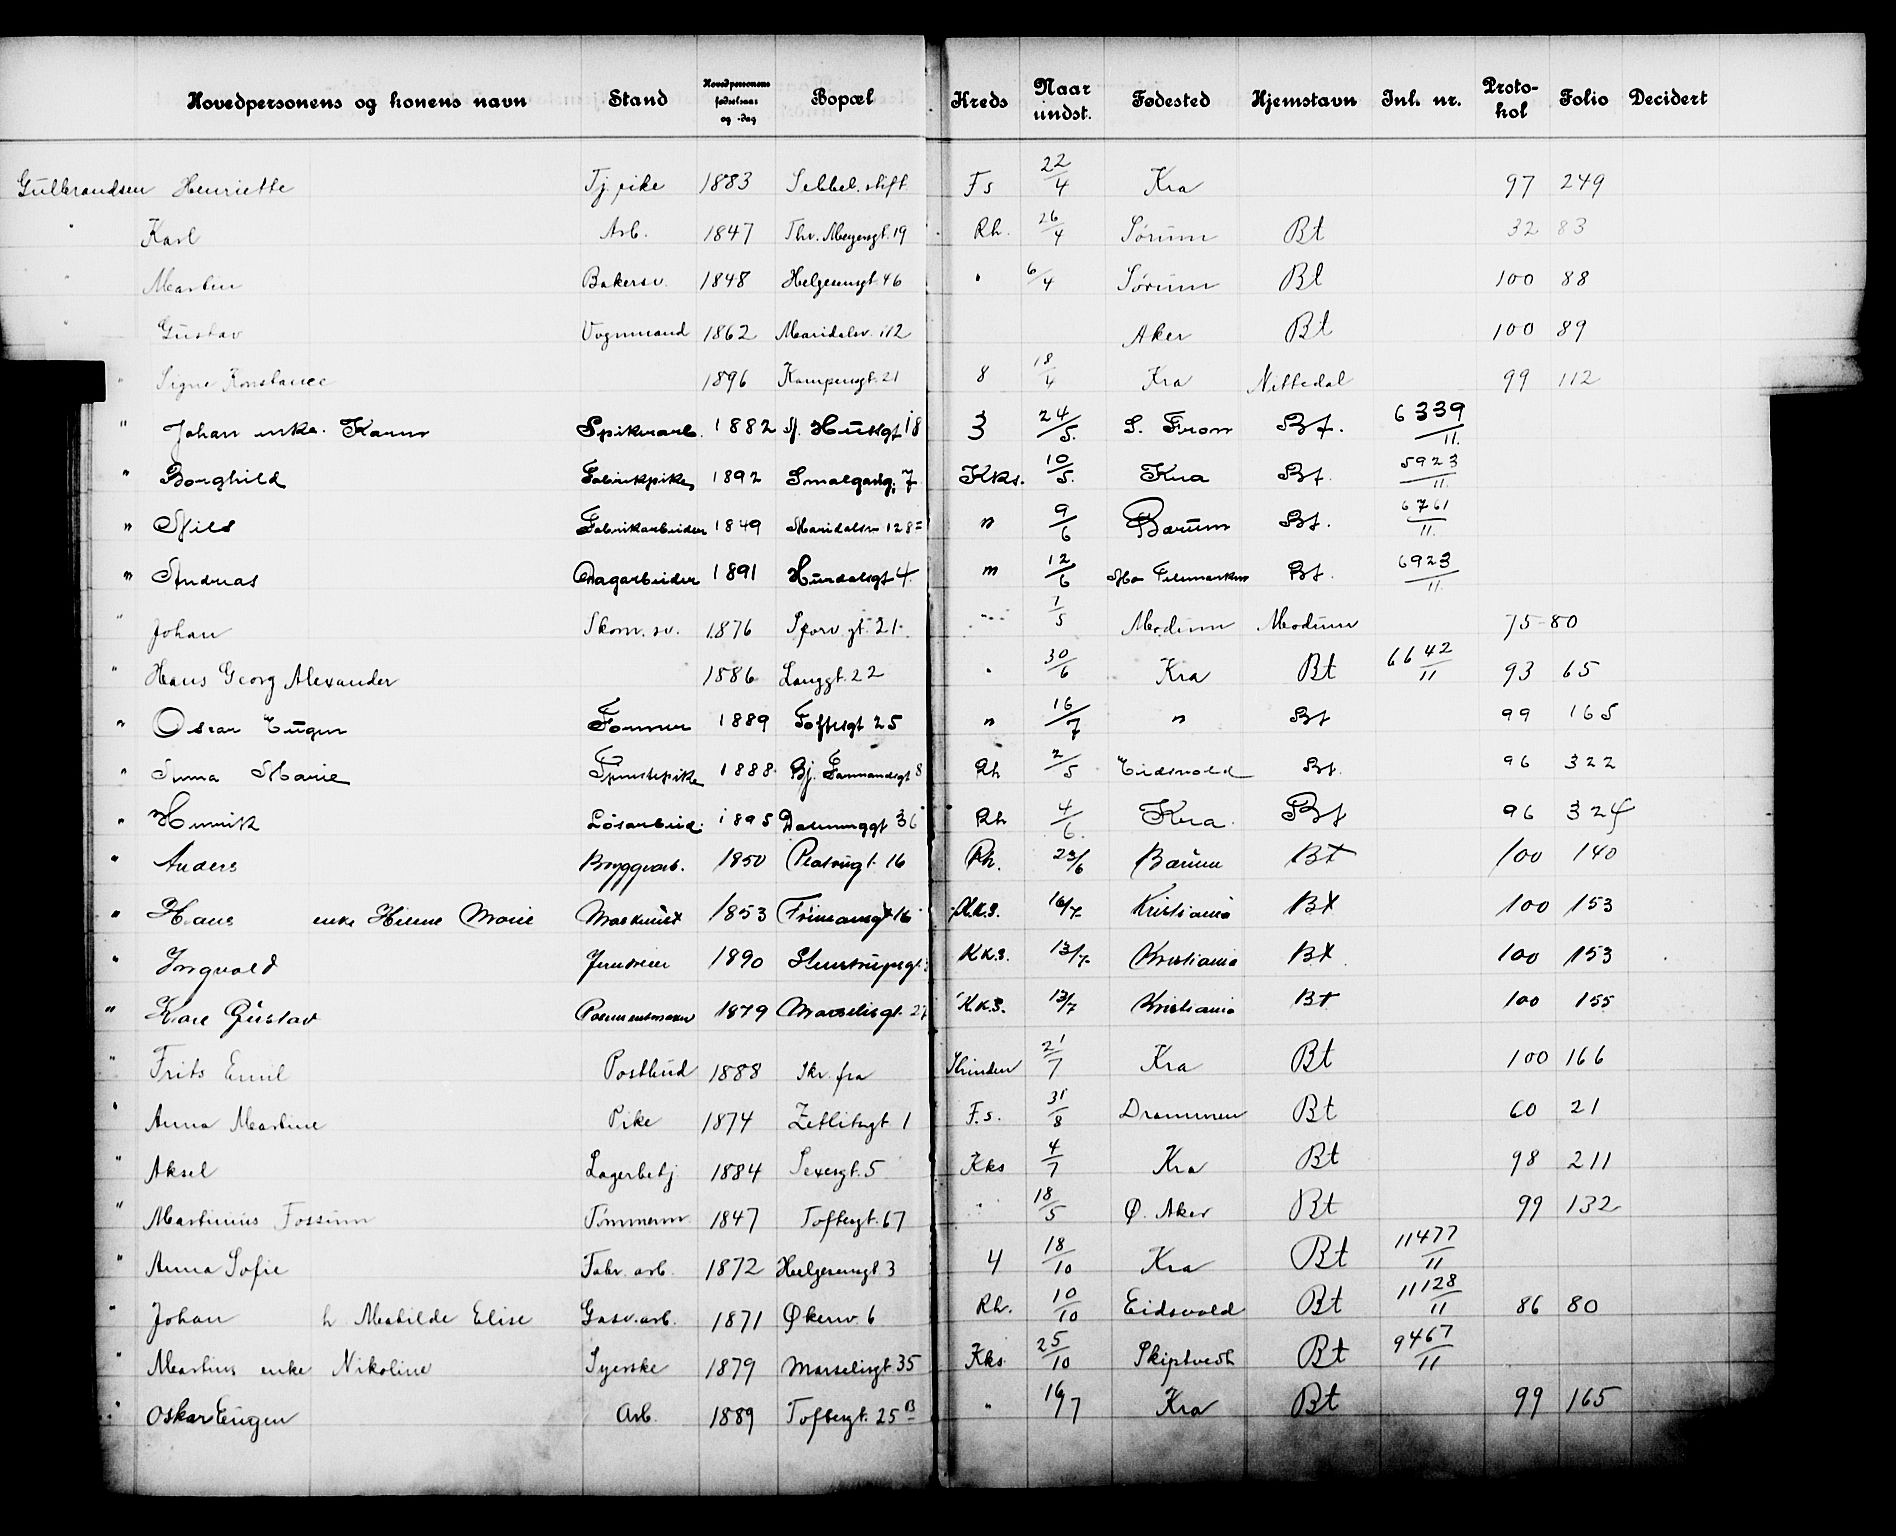 Hovedpersonens og konens navn Stand Hovedpersonens fødselsaar og -dag Bopæl Kreds Naar undst. Fødested Hjemstavn Inl. nr. Proto-kol Folio Decidert
Gulbrandsen Henriette Tj. pike 1883 Sebbel. stift. Fs 22/4 Kra 97 249
" Karl Arb. 1847 Thv. Meyersgt. 19 Rh. 26/4 Sørum Bt 32 83
" Martin Bakersv. 1848 Helgesensgt. 46 " 6/4 Sørum Bt 100 88
" Gustav Vognmand 1862 Maridalsv. 112 Aker Bt 100 89
" Signe Konstance 1896 Kampensgt. 21 8 18/4 Kra Nittedal 99 112
" Johan enke. Karen Spikerarb. 1882 N. Husligt 18 3 24/5. S. Fron Bt. 6339/11.
" Borghild Fabrikpike 1892 Smalgang. 7 Kks. 10/5. Kra Bt. 5923/11.
" Nils Fabrikarbeider 1849 Maridalsv 128 " 9/6 Bærum Bt. 6761/11.
" Andreas Dagarbeider 1891 Hurdalsgt 4. " 12/6 Bt. 6923/11.
" Johan Skom. sv. 1876 Sporv. gt. 21. " 1/5 Modum Modum 75 80
" Hans Georg Alexander 1886 Langgt. 22 " 30/6 Kra Bt 6642/11 93 65
" Oscar Eugen Former 1889 Toftesgt 25 " 16/7 " Bt 99 165
" Anna Marie Tjenestepike 1888. Bj. Farmandsgt 8 Rh 2/5 Eidsvold Bt. 96 322
" Henrik Løsarbeid. 1895 Dælenenggt 36 Rh 4/6. Kra. Bt 96 324
" Anders Bryggearb. 1850 Platousgt. 16 Rh. 23/6 Bærum Bt 100 140
" Hans enke Helene Marie Maskinist 1853 Frimansgt 16 K.k.s. 16/7 Kristiania Bt 100 153
" Ingvald Jerndreier 1890 Stenstrupsgt. K.K.S. 13/7. Kristiania Bt 100 153
" Karl Gustav Possementmaker 1879 Marselisgt. 27 K.K.S. 13/7 Kristiania Bt 100 155
" Frits Emil Postbud 1888 Skr. fra Kvinden 21/7 Kra Bt 100 166
" Anna Martine Pike 1874 Zetlitzgt. 1 F.s. 31/8 Drammen Bt 60 21
" Aksel Lagerbetj 1884 Sexesgt. 5 Kks 4/7 Kra Bt 98 211
" Martinius Fossum Tømmerm. 1847 Toftesgt. 67 " 18/5 Ø. Aker Bt 99 132
" Anna Sofie Fabr. arb. 1872 Helgesensgt. 3 4 18/10 Kra Bt 11477/11
" Johan h. Mathilde Elise Gasv. arb. 1871 Økernv. 6 Rh. 10/10 Eidsvold Bt 11128/11 86 80
" Martius enke Nikoline Syerske 1879 Marselisgt. 35 Kks. 25/10 Skiptvedt Bt 9467/11
" Oskar Eugen Arb. 1889 Toftesgt. 25 B " 16/7 Kra Bt 99 165